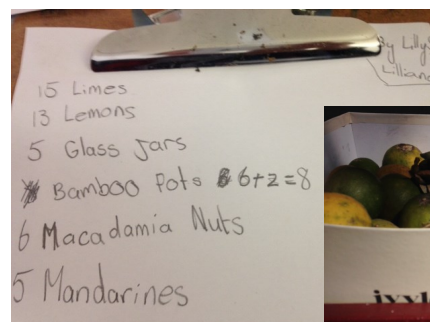 By Lilly
Lilliana
15 Limes
13 Lemons
5 Glass Jars
Bamboo Pots 6+2=8
6 Macadamia Nuts
5 Mandarines